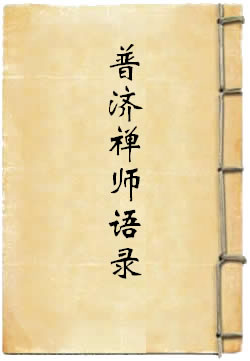 普济禅师语录